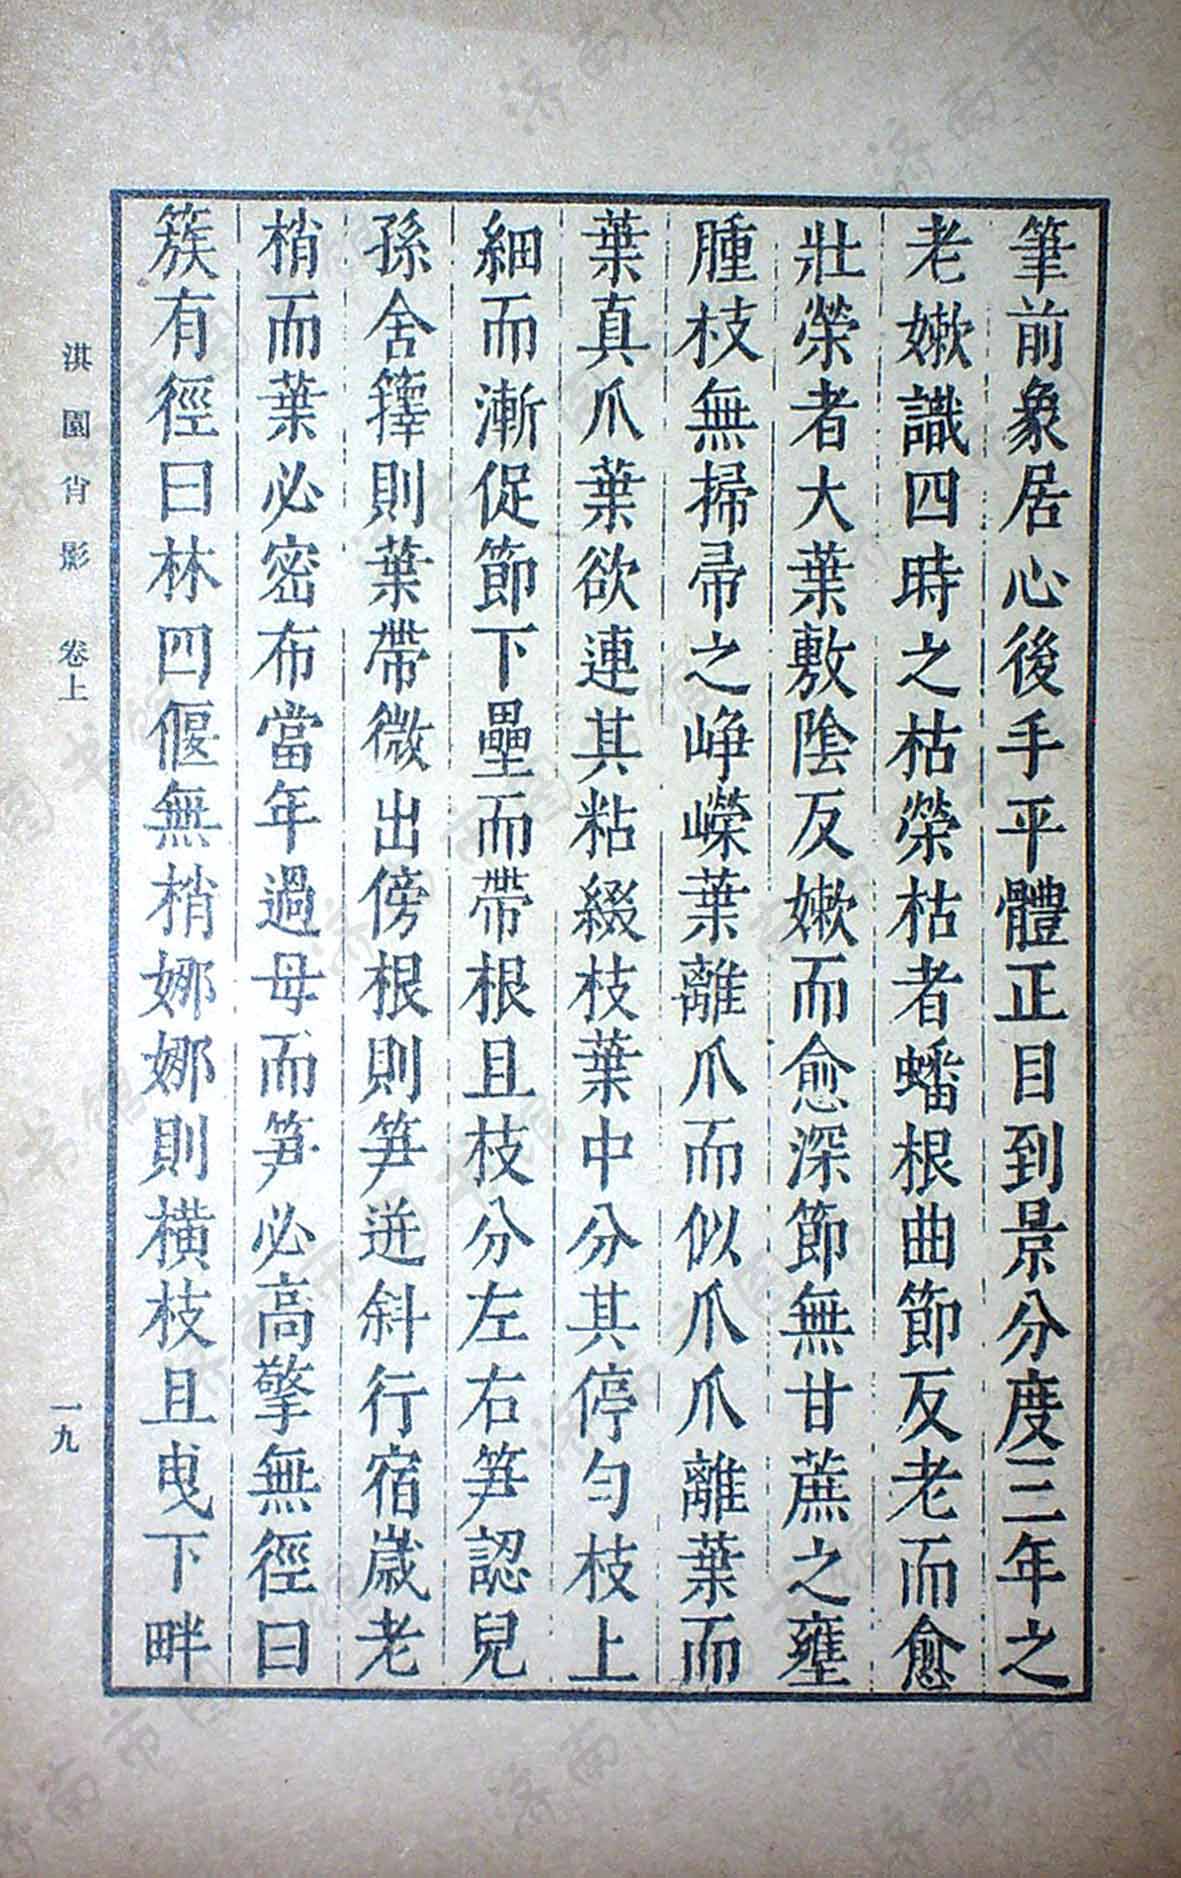 筆前象居心後手平體正目到景分度三年之
老嫰識四時之枯榮枯者蟠根曲節反老而愈
壯榮者大葉敷陰反嫰而愈深節無甘蔗之壅
腫枝無掃帚之崢嶸葉離爪而似爪爪離葉而
葉真爪葉欲連其粘綴枝葉中分其停勻枝上
細而漸促節下壘而帶根且枝分左右笋認兒
孫舍籜則葉帶微出傍根則笋迸斜行宿歲老
梢而葉必密布當年過母而笋必高擎無徑曰
簇有徑曰林四偃無梢娜娜則橫枝且曳下畔
淇園肖影 卷上
一九